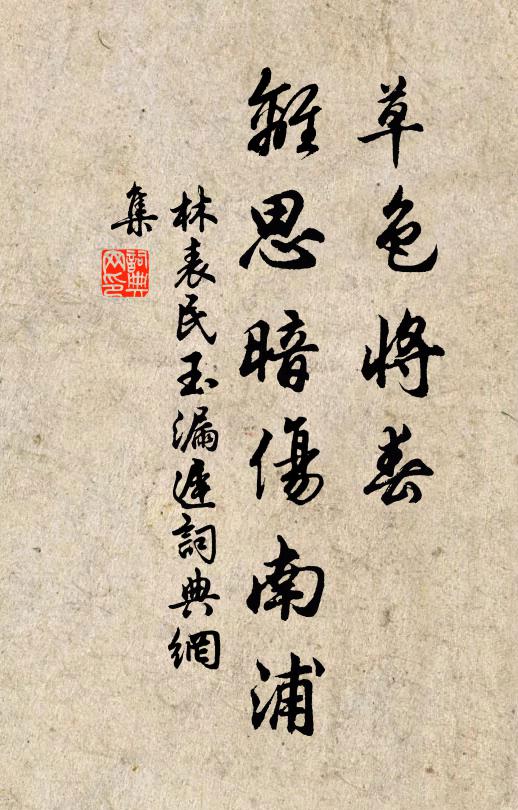 草色將春
離思暗傷南浦
林表民玉漏遲詞典網
集
詞典網印